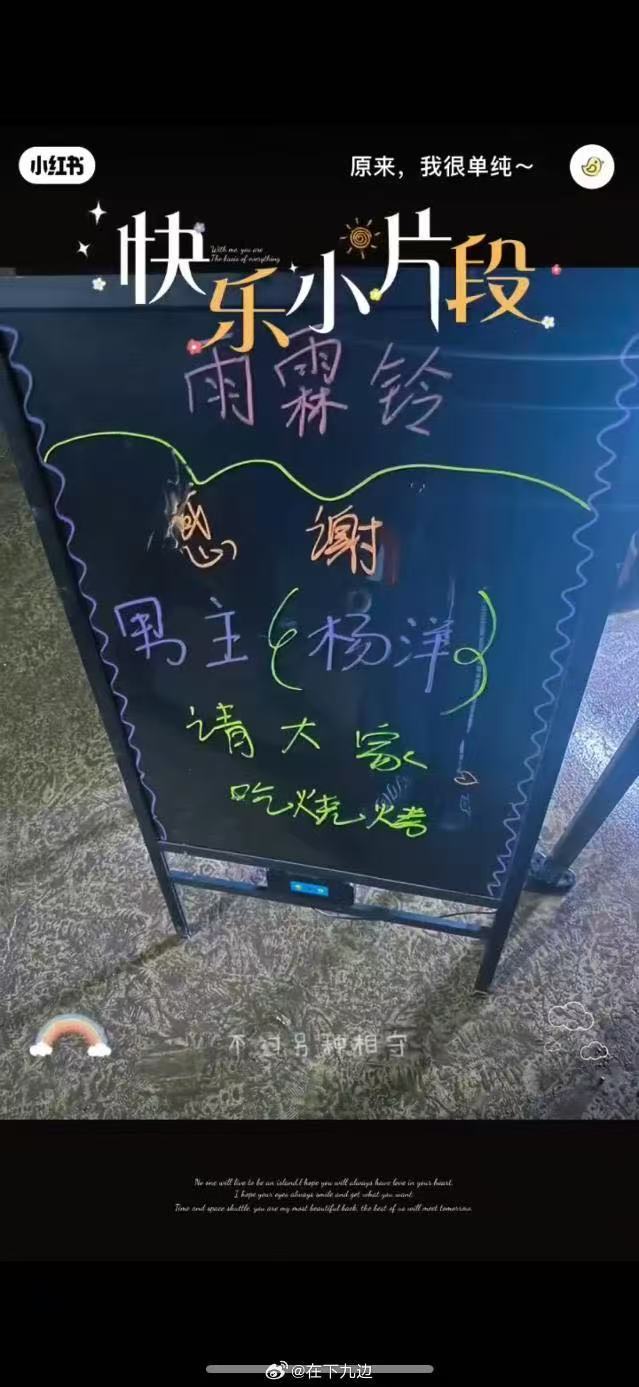 小红书
原来，我很单纯～
快乐小片段
With me, you are
The basis of everything
雨霖铃
感谢
男主{杨洋}
请大家
吃烧烤
不过另种相守
No one will live to be an island.I hope you will always have love in your heart.
I hope your eyes always smile and get what you want.
Time and space shuttle, you are my most beautiful back, the best of us will meet tomorrow.
@在下九边